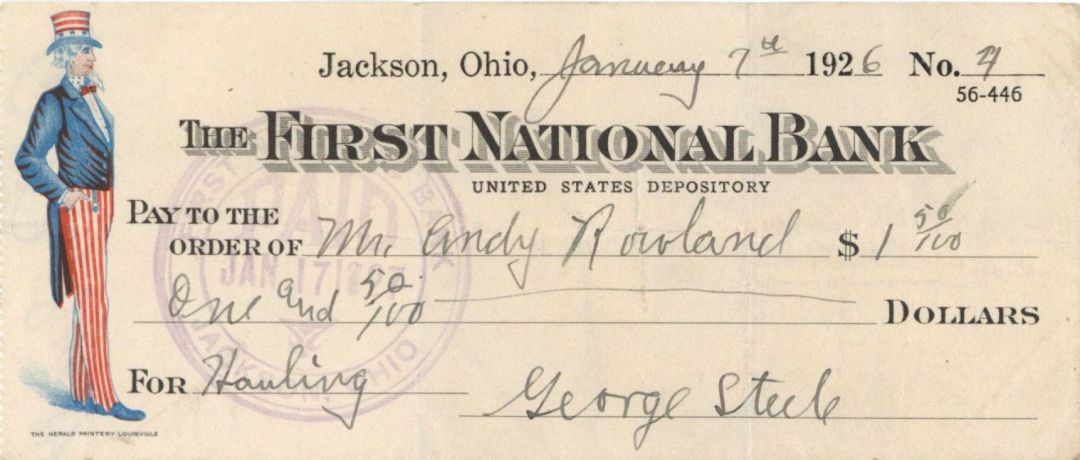 Jackson, Ohio, January 7th 1926 No. 4
56-446
THE FIRST NATIONAL BANK
UNITED STATES DEPOSITORY
PAY TO THE
ORDER OF Mr. Andy Rowland $ 1 50/100
One and 50/100 DOLLARS
FOR Hauling
George Steele
PAID
JAN 17
JACKSON, OHIO
THE HERALD PRINTERY LOUISVILLE